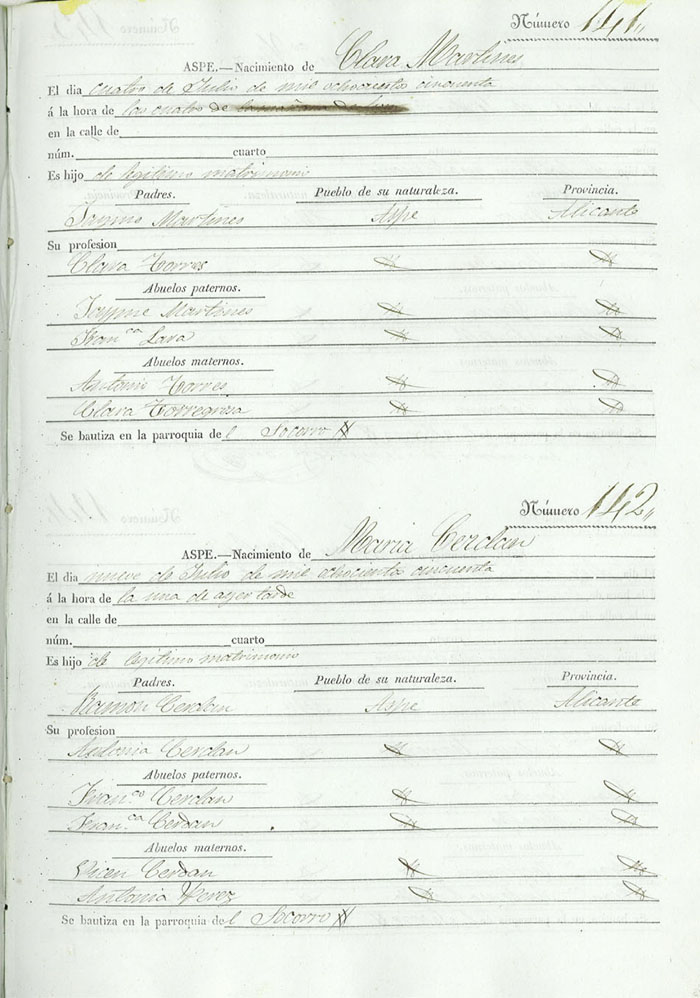 Número 141
ASPE.—Nacimiento de Clara Martines
El dia cuatro de Julio de mil ochociento cincuenta
á la hora de las cuatro de
en la calle de
núm. cuarto
Es hijo de legitimo matrimoni
Padres. Pueblo de su naturaleza. Provincia.
Jayme Martines Aspe Alicante
Su profesion
Clara Torres
Abuelos paternos.
Jayme Martines
Fran.ca Lara
Abuelos maternos.
Antonio Torres
Clara Torregrosa
Se bautiza en la parroquia del Socorro
Número 142
ASPE.—Nacimiento de Maria Cerdan
El dia nueve de Julio de mil ochociento cincuenta
á la hora de la una de ayer tarde
en la calle de
núm. cuarto
Es hijo de legitimo matrimonio
Padres. Pueblo de su naturaleza. Provincia.
Ramon Cerdan Aspe Alicante
Su profesion
Antonia Cerdan
Abuelos paternos.
Fran.co Cerdan
Fran.ca Cerdan
Abuelos maternos.
Vicen Cerdan
Antonia Perez
Se bautiza en la parroquia del Socorro